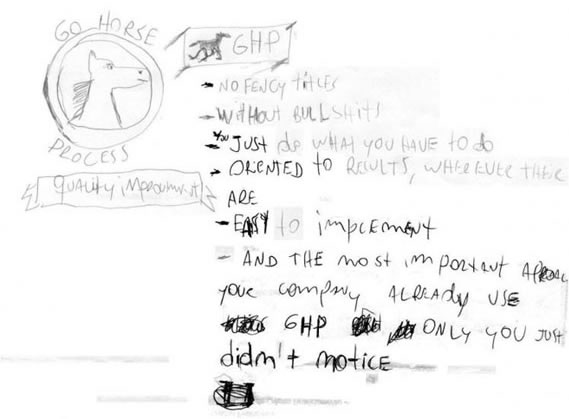 GO HORSE
PROCESS
QUALITY IMPROVEMENT
GHP
- NO FENCY TITLES
- WITHOUT BULLSHITS
- YOU JUST DO WHAT YOU HAVE TO DO
- ORIENTED TO RESULTS, WHEREVER THEIR
ARE
- EASY TO IMPLEMENT
- AND THE MOST IMPORTANT
YOUR COMPANY ALREADY USE
GHP ONLY YOU JUST
didn't notice